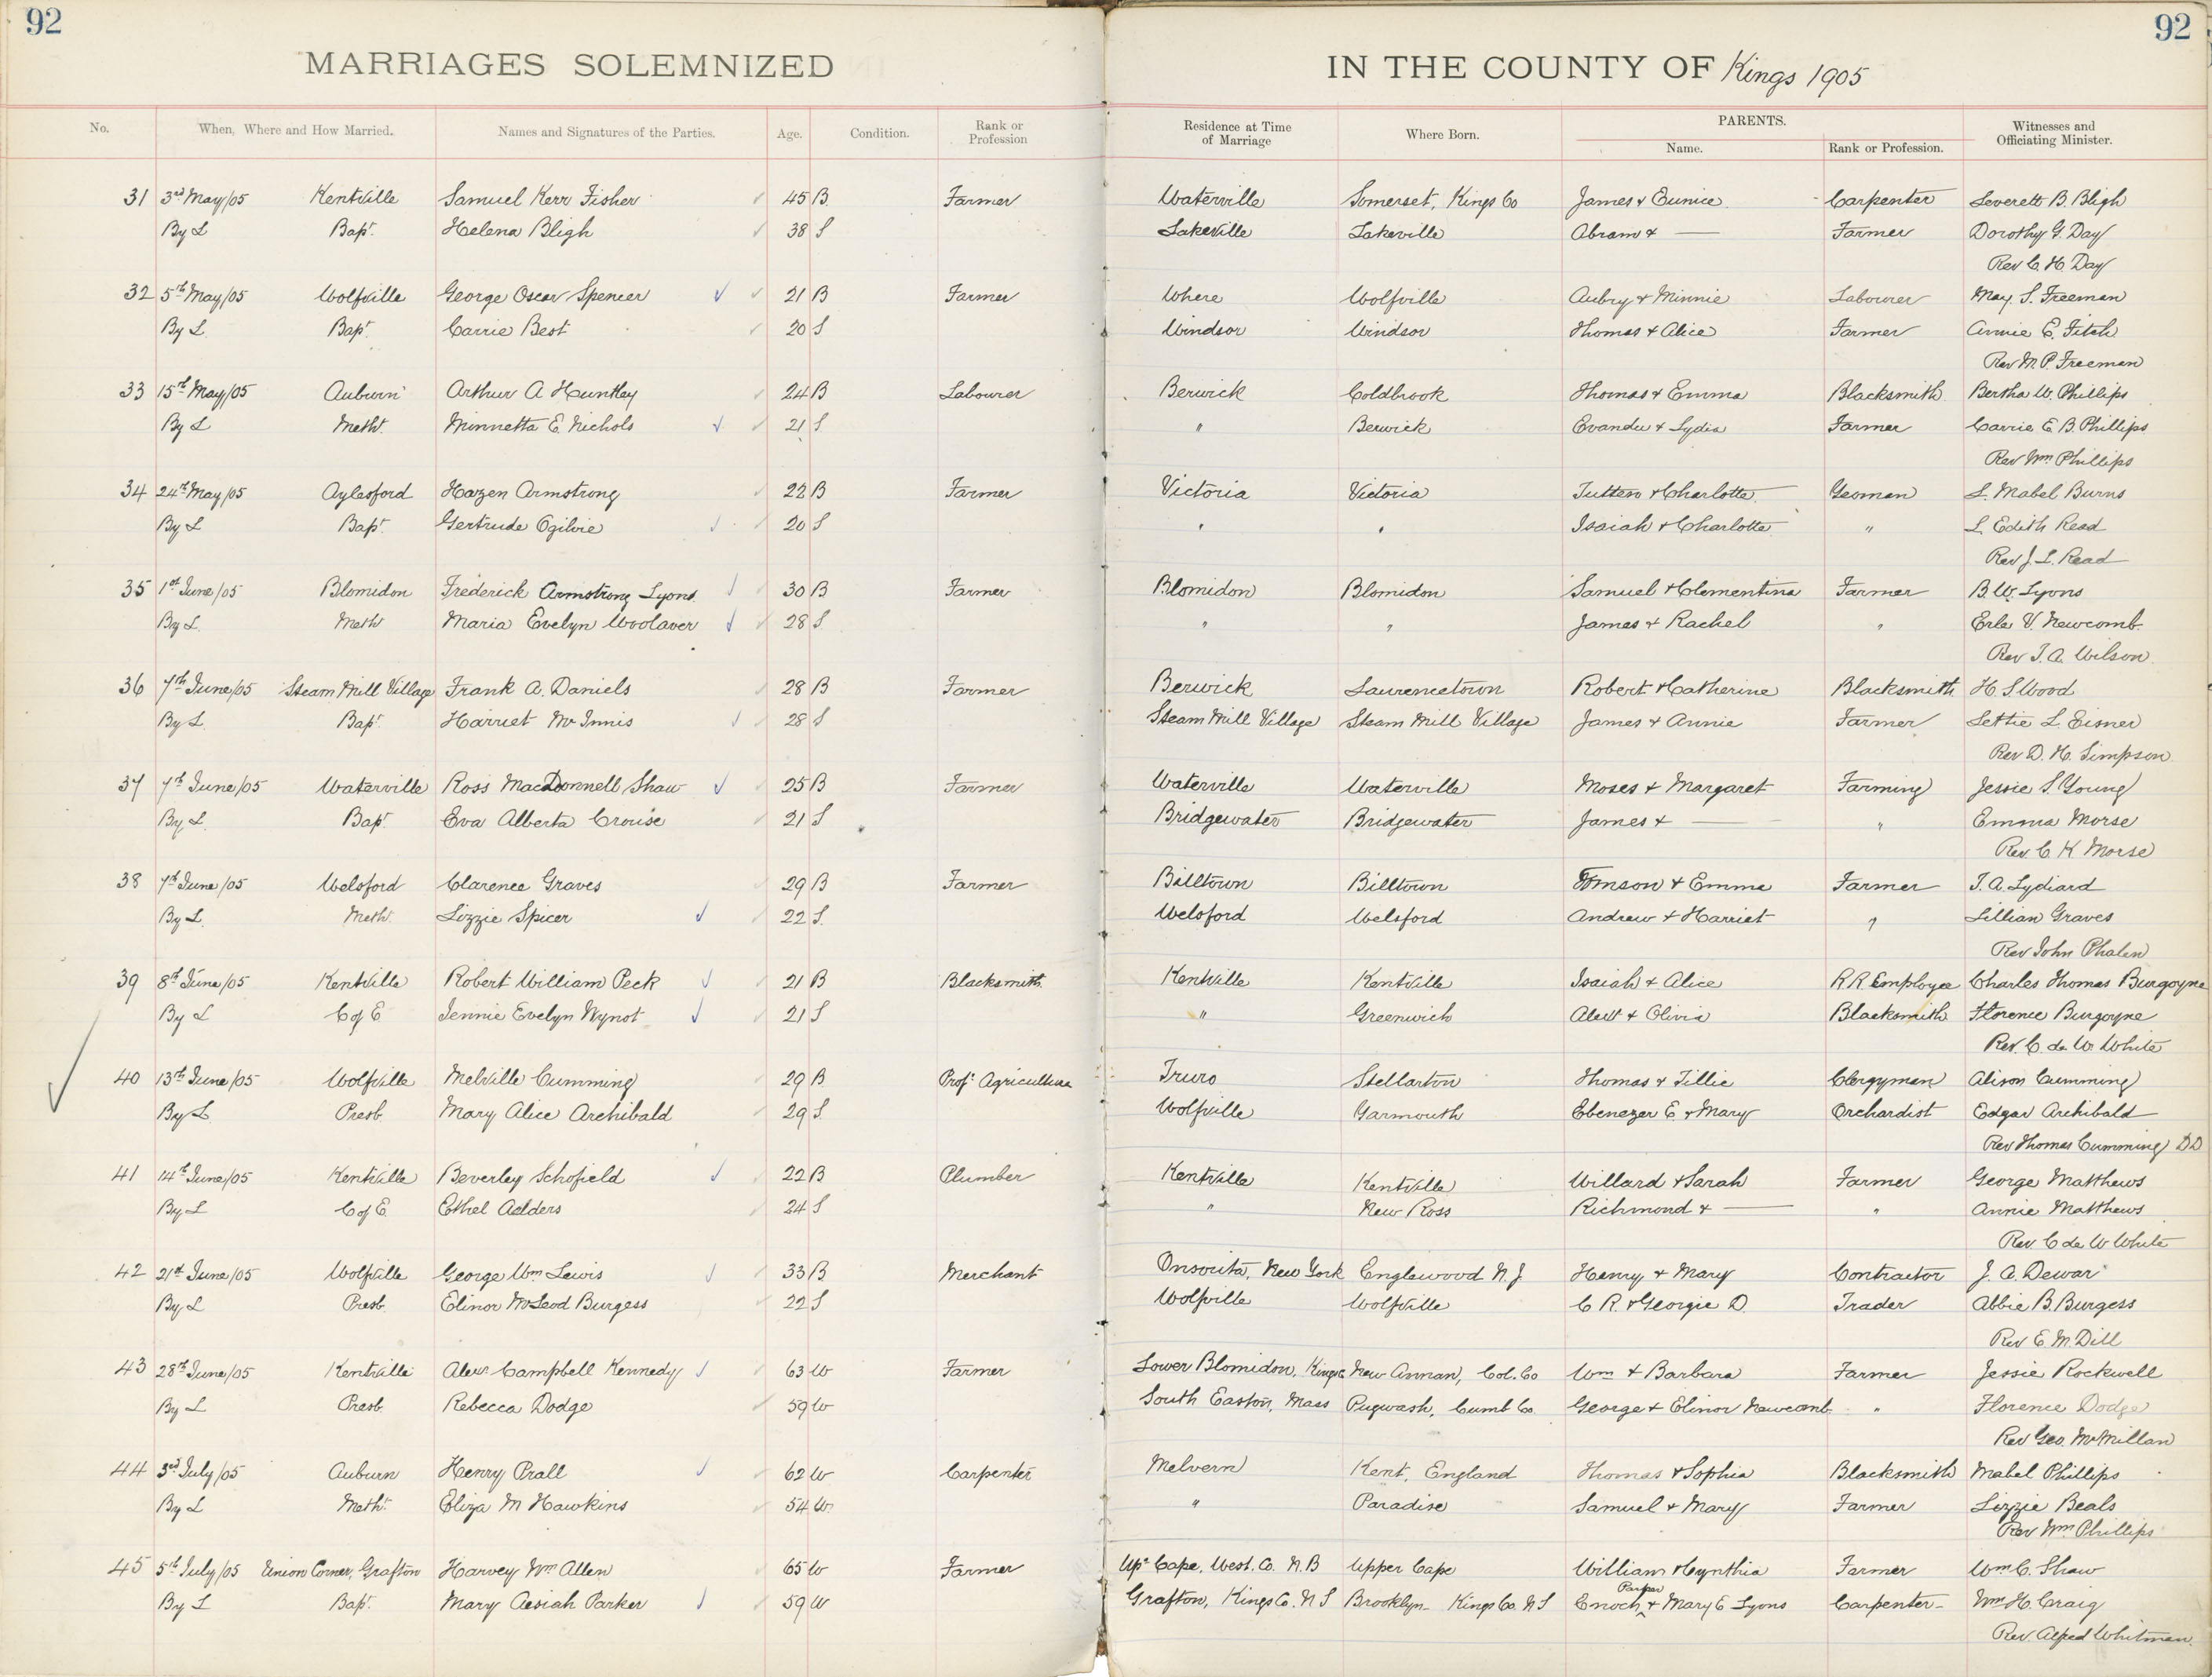 92 92
MARRIAGES SOLEMNIZED IN THE COUNTY OF Kings 1905
No. When, Where and How Married. Names and Signatures of the Parties. Age. Condition. Rank or Profession Residence at Time of Marriage Where Born. PARENTS. Name. Rank or Profession. Witnesses and Officiating Minister.
31 3rd May/05 Kentville Samuel Kerr Fisher 45 B Farmer Waterville Somerset, Kings Co James & Eunice Carpenter Leverett B. Bligh
By L Bapt. Helena Bligh 38 S Lakeville Lakeville Abram & — Farmer Dorothy G. Day
Rev C. H Day
32 5th May/05 Wolfville George Oscar Spencer 21 B Farmer Where Wolfville Aubry & Minnie Labourer May. S. Freeman
By L Bapt. Carrie Best 20 S Windsor Windsor Thomas & Alice Farmer Annie E. Fitch
Rev M. P. Freeman
33 15th May/05 Auburn Arthur A Huntley 24 B Labourer Berwick Coldbrook Thomas & Emma Blacksmith Bertha W. Phillips
By L Metht. Minnetta E. Nichols 21 S " Berwick Evander & Lydia Farmer Carrie E. B. Phillips
Rev Wm Phillips
34 24th May/05 Aylesford Hazen Armstrong 22 B Farmer Victoria Victoria & Charlotte Yeoman L. Mabel Burns
By L Bapt. Gertrude Ogilvie 20 S " " Isaiah & Charlotte " L Edith Read
Rev J. L. Read
35 1st June/05 Blomidon Frederick Armstrong Lyons 30 B Farmer Blomidon Blomidon Samuel & Clementina Farmer B. W. Lyons
By L. Meth Maria Evelyn Woolaver 28 S " " James & Rachel " Erle V. Newcomb
Rev J. A. Wilson
36 7th June/05 Steam Mill Village Frank A. Daniels 28 B Farmer Berwick Laurencetown Robert & Catherine Blacksmith H S Wood
By L Bapt. Harriet McInnis 28 S Steam Mill Village Steam Mill Village James & Annie Farmer Lettie L Eisner
Rev D. H. Simpson
37 7th June/05 Waterville Ross MacDonnell Shaw 25 B Farmer Waterville Waterville Moses & Margaret Farming Jessie S. Young
By L. Bapt Eva Alberta Crouse 21 S Bridgewater Bridgewater James & — " Emma Morse
Rev. C. K Morse
38 7th June/05 Welsford Clarence Graves 29 B Farmer Billtown Billtown & Emma Farmer J. A. Lydiard
By L. Meth Lizzie Spicer 22 S. Welsford Welsford Andrew & Harriet " Lillian Graves
Rev John Phalen
39 8th June/05 Kentville Robert William Peck 21 B Blacksmith Kentville Kentville Isaiah & Alice R R Employee Charles Thomas Burgoyne
By L C of E Jennie Evelyn Wynot 21 S " Greenwich & Olivia Blacksmith Florence Burgoyne
Rev. C. de W. White
40 13th June/05 Wolfville Melville Cumming 29 B Prof. Agriculture Truro Stellarton Thomas & Tillie Clergyman Alison Cumming
By L Presb. Mary Alice Archibald 29 S. Wolfville Yarmouth Ebenezer E. & Mary Orchardist Edgar Archibald
Rev Thomas Cumming DD
41 14th June/05 Kentville Beverley Schofield 22 B Plumber Kentville Kentville Willard & Sarah Farmer George Matthews
By L C of E. Ethel Aelders 24 S " New Ross Richmond & — " Annie Matthews
Rev. C de W White
42 21st June/05 Wolfville George Wm Lewis 33 B Merchant New York Englewood N. J Henry & Mary Contractor J. A. Dewar
By L Presb. Elinor McLeod Burgess 22 S Wolfville Wolfville C R. & Georgie D. Trader Abbie B. Burgess
Rev E. M. Dill
43 28th June/05 Kentville Alexr. Campbell Kennedy 63 W Farmer Lower Blomidon, Kings C. New Annan, Col. Co Wm & Barbara Farmer Jessie Rockwell
By L Presb Rebecca Dodge 59 W South Easton, Mass Pugwash, Cumb Co. George & Elinor Newcomb " Florence Dodge
Rev Geo. McMillan
44 3rd July/05 Auburn Henry Prall 62 W Carpenter Melvern Kent, England Thomas & Sophia Blacksmith Mabel Phillips
By L Metht. Eliza M Hawkins 54 W. " Paradise Samuel & Mary Farmer Lizzie Beals
Rev Wm Phillips
45 5th July/05 Union Corner, Grafton Harvey Wm Allen 65 W Farmer Upr Cape, West. Co. N. B Upper Cape William & Cynthia Farmer Wm C. Shaw
By L Bapt. Mary Parker 59 W Grafton, Kings Co. N S Brooklyn - Kings Co. N S Enoch Parker & Mary E Lyons Carpenter - Wm. H. Craig
Rev. Alfred Whitman